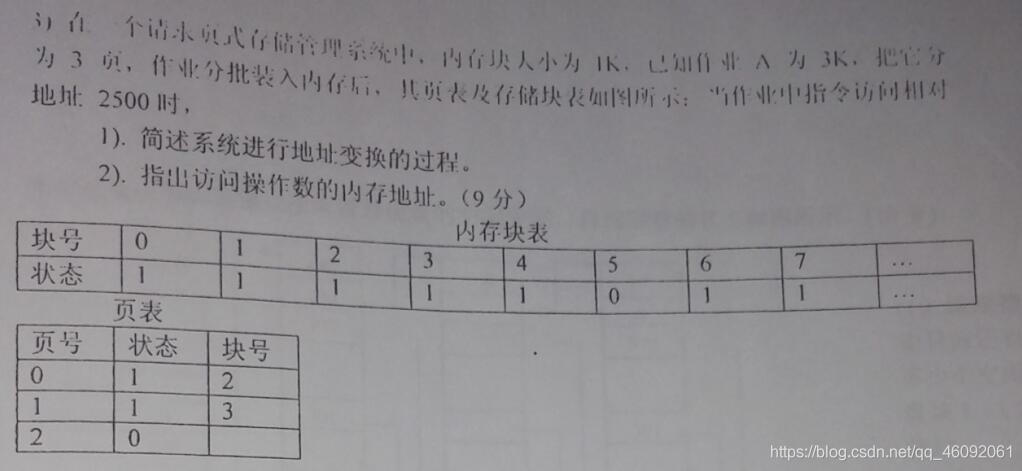 3) 在一个请求页式存储管理系统中，内存块大小为 1K，已知作业 A 为 3K，把它分
为 3 页，作业分批装入内存后，其页表及存储块表如图所示：当作业中指令访问相对
地址 2500 时，
1). 简述系统进行地址变换的过程。
2). 指出访问操作数的内存地址。（9 分）
内存块表
块号 0 1 2 3 4 5 6 7 …
状态 1 1 1 1 1 0 1 1 …
页表
页号 状态 块号
0 1 2
1 1 3
2 0
https://blog.csdn.net/qq_46092061